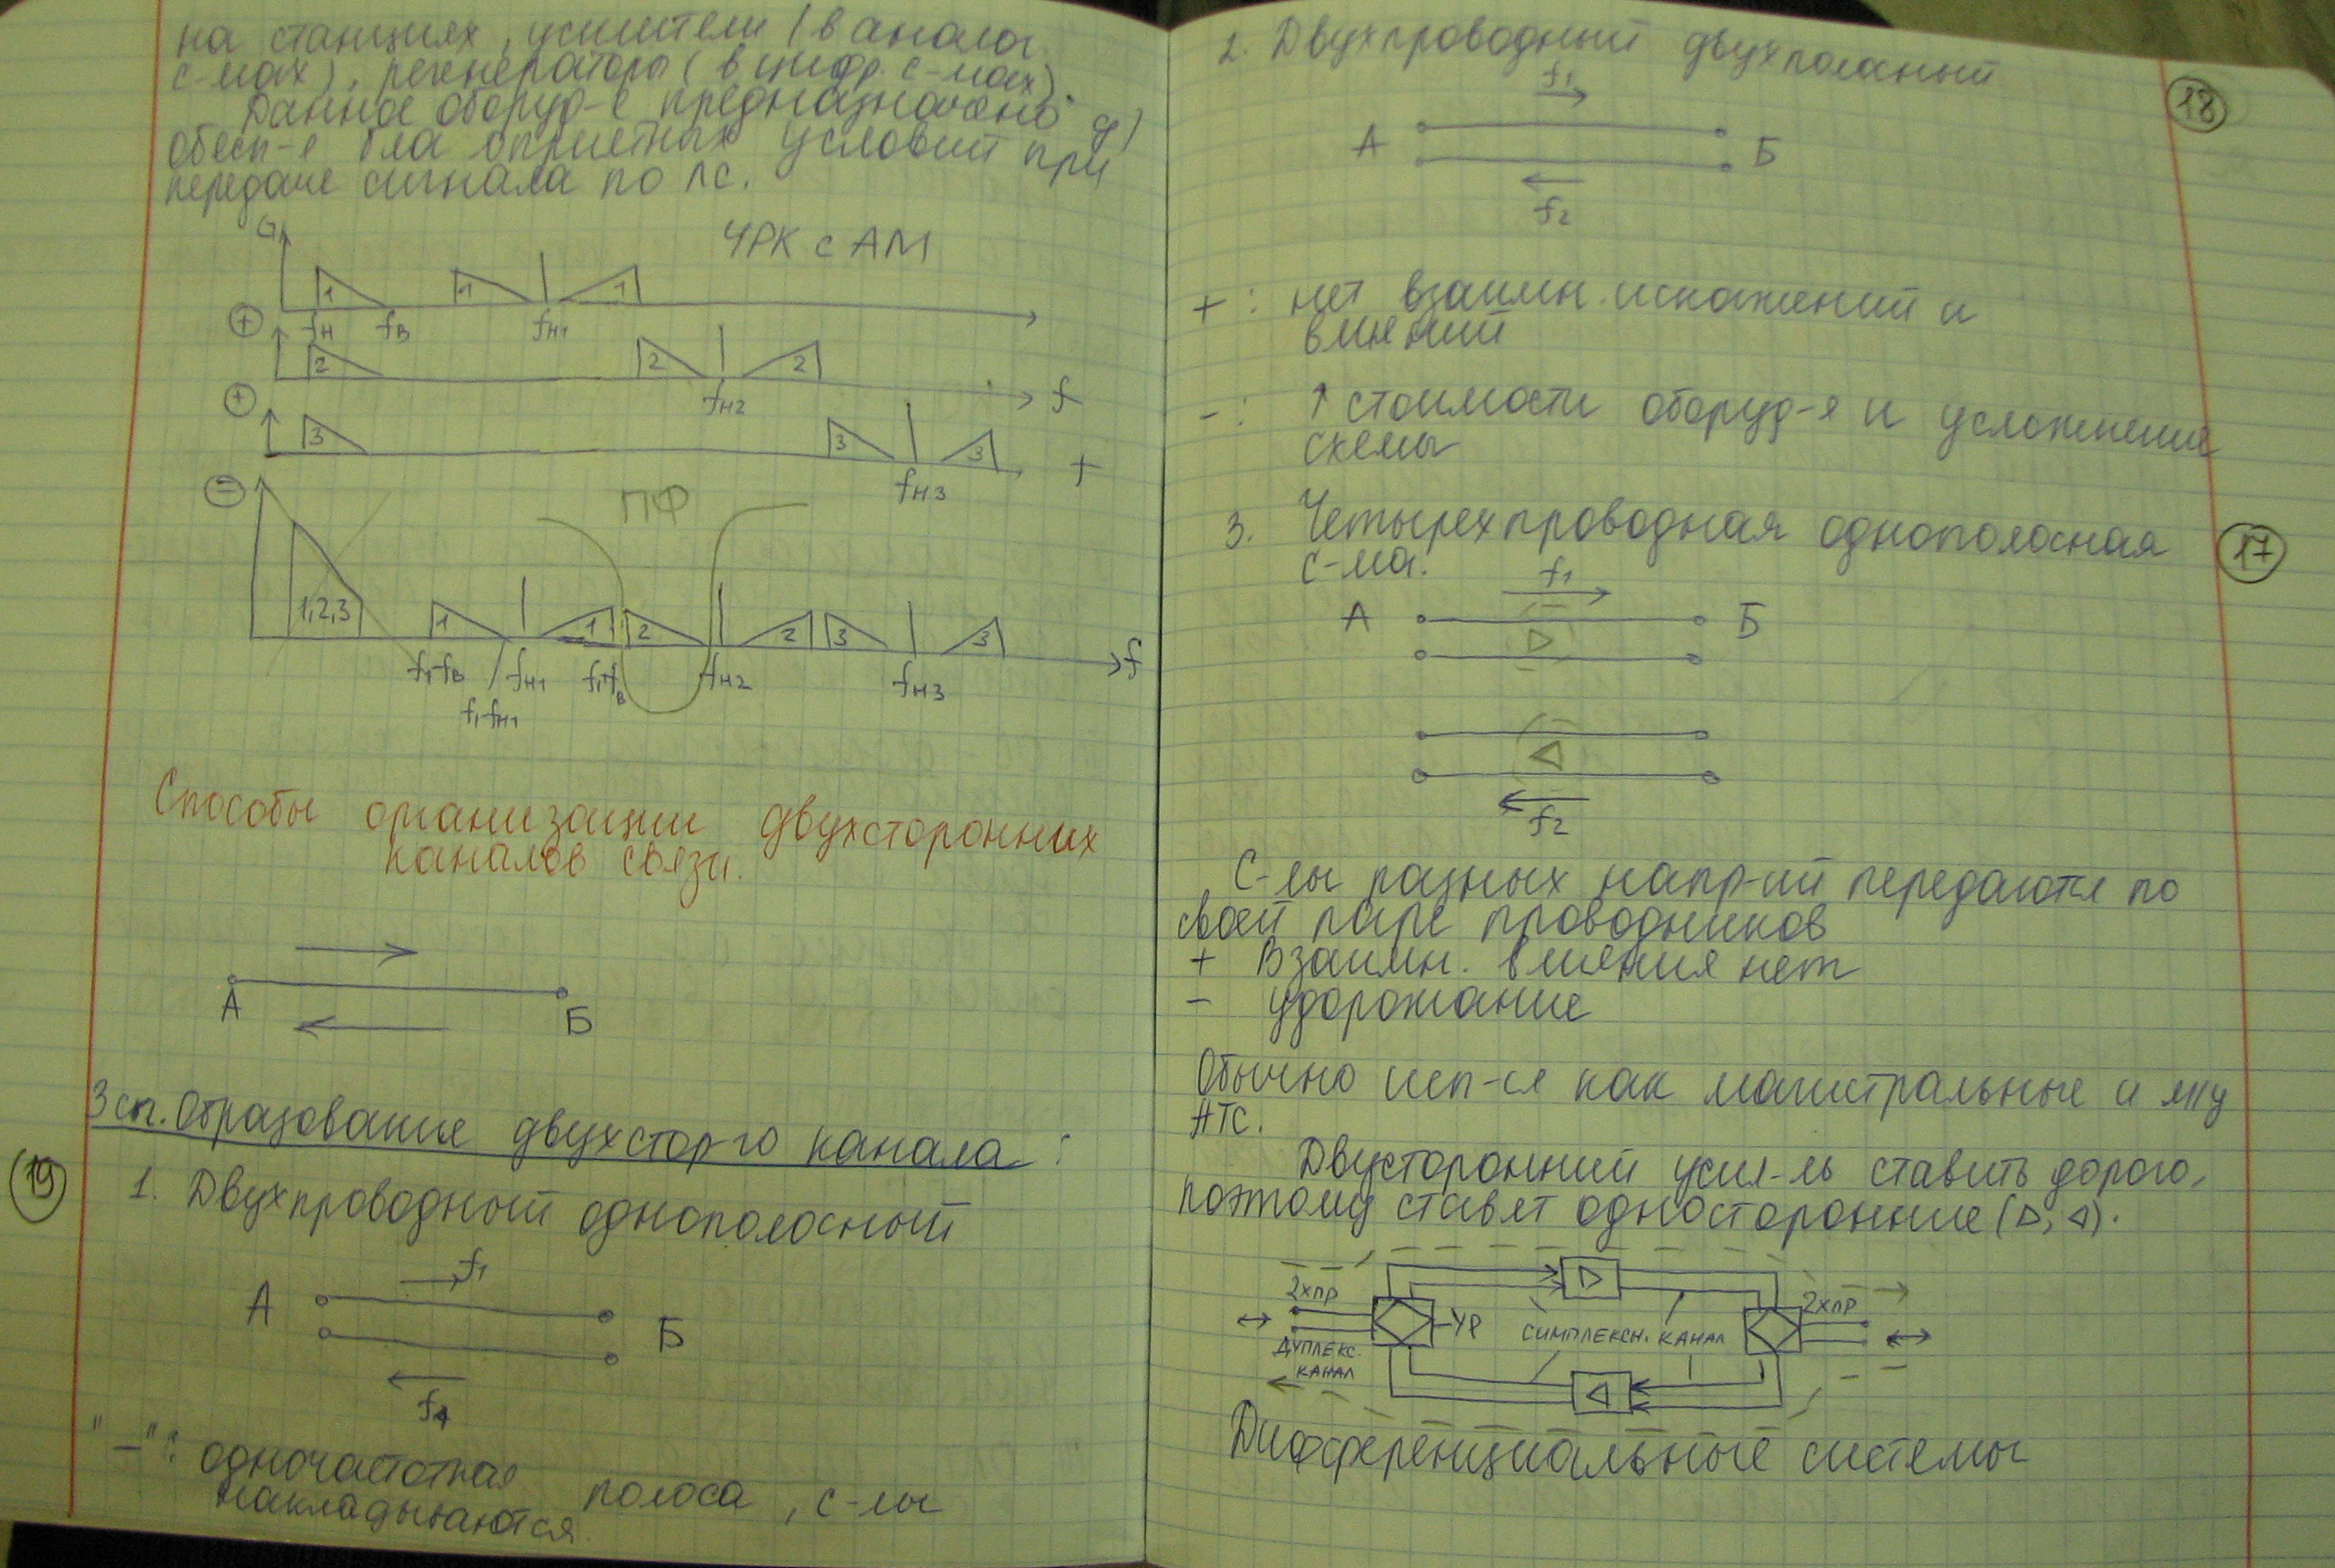 на станциях, усилители (в аналог.
с-мах), регенераторы (в цифр. с-мах).
Данное оборуд-е предназначено д/
обесп-е благоприетных условий при
передаче сигнала по лс.
ЧРК с АМ
1 1 1
+ fн fв fн1
2 2 2
+ fн2 f
3 3 3
fн3 f
= ПФ
1,2,3 1 1 2 2 3 3
f1-fв fн1 f1+fв fн2 fн3 f
f1-fн1
Способы организации двухсторонних
каналов связи.
А Б
3 сп. Образование двухстор-го канала:
19
1. Двухпроводный однополосный
f1
А Б
f1
"–": одночастотная полоса, с-лы
накладываются.
2. Двухпроводный двухполосный
18
f1
А Б
f2
+: нет взаимн. искажений и
влияний
-: ↑ стоимости оборуд-я и усложнение
схемы
3. Четырехпроводная однополосная
17
с-ма.
f1
А Б
f2
С-лы разных напр-ий передаются по
своей паре проводников
+ Взаимн. влияния нет
- удорожание
Обычно исп-ся как магистральные и м/у
АТС.
Двусторонний усил-ль ставить дорого,
поэтому ставят односторонние (▷, ◁).
2хпр 2хпр
УР СИМПЛЕКСН. КАНАЛ
ДУПЛЕКС.
КАНАЛ
Дифференциальные системы